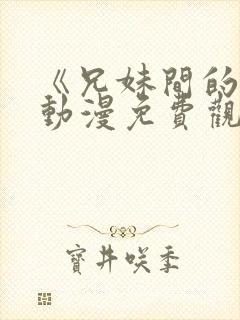 《兄妹間的
動漫免費觀
寶井咲季